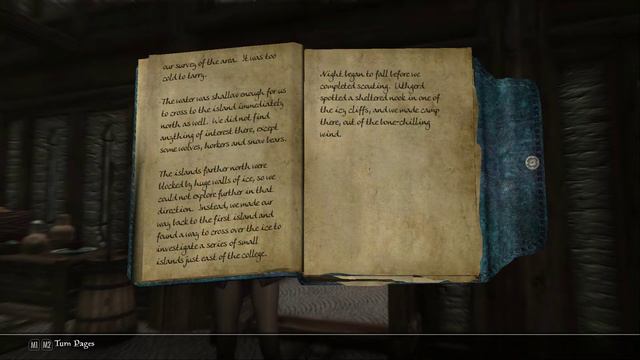 our survey of the area. It was too
cold to tarry.
The water was shallow enough for us
to cross to the island immediately
north as well. We did not find
anything of interest there, except
some wolves, horkers and snow bears.
The islands farther north were
blocked by huge walls of ice, so we
could not explore further in that
direction. Instead, we made our
way back to the first island and
found a way to cross over the ice to
investigate a series of small
islands just east of the college.
Night began to fall before we
completed scouting. Uthgerd
spotted a sheltered nook in one of
the icy cliffs, and we made camp
there, out of the bone-chilling
wind.
M1 M2 Turn Pages